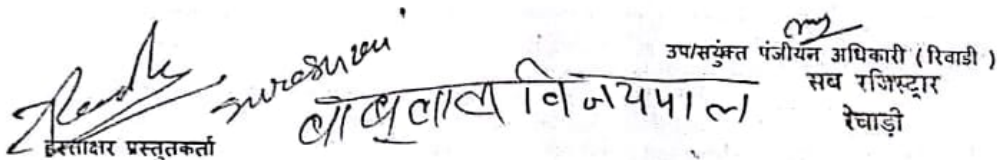 उप/सयुंक्त पंजीयन अधिकारी ( रिवाडी )
सब रजिस्ट्रार
रेवाड़ी
बाबुलाल विजयपाल
हस्ताक्षर प्रस्तुतकर्ता